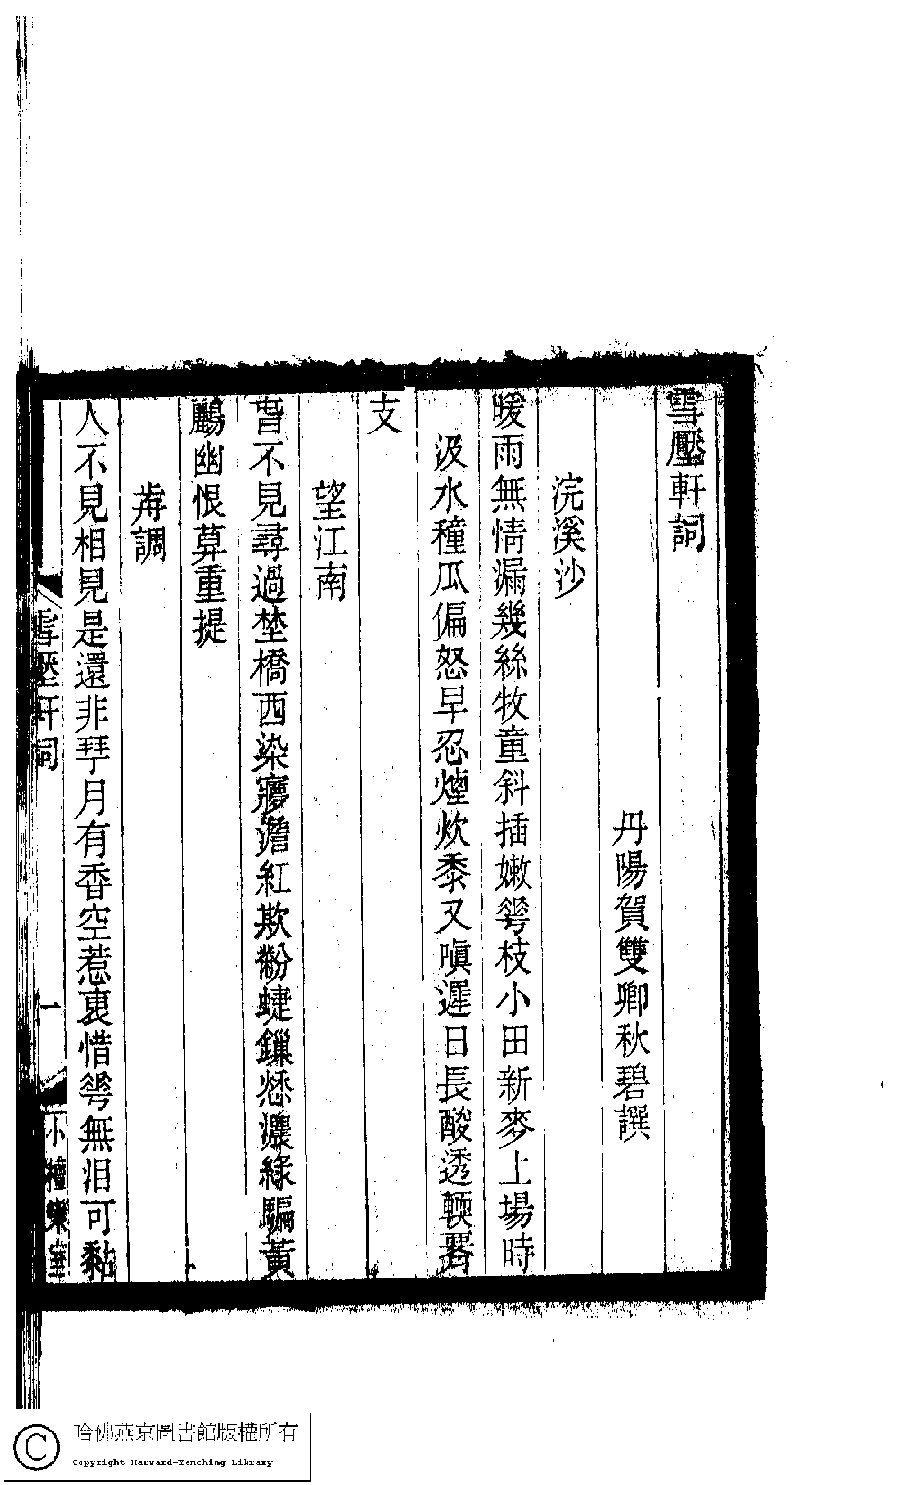 雪壓軒詞
丹陽賀雙卿秋碧譔
浣溪沙
暖雨無情漏幾絲牧童斜插嫩芲枝小田新麥上場時
汲水種瓜偏怒早忍煙炊黍又嗔遲日長酸透輭署
支
望江南
旹不見尋過埜橋西染㝱澹紅欺粉蜨鎖愁濃綠騙黃
鸝幽恨莫重提
歬調
人不見相見是還非拜月有香空惹褏惜芲無泪可黏
雪壓軒詞
一
小檀欒室
哈佛燕京圖書館版權所有
Copyright Harvard-Yenching Library